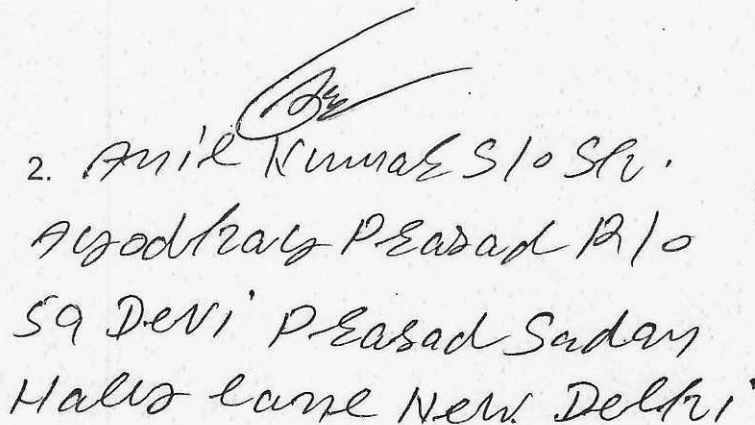 2. Anil Kumar S/o Sh.
Ayodhay Prasad R/o
59 Devi Prasad Sadan
Haley Lane New Delhi